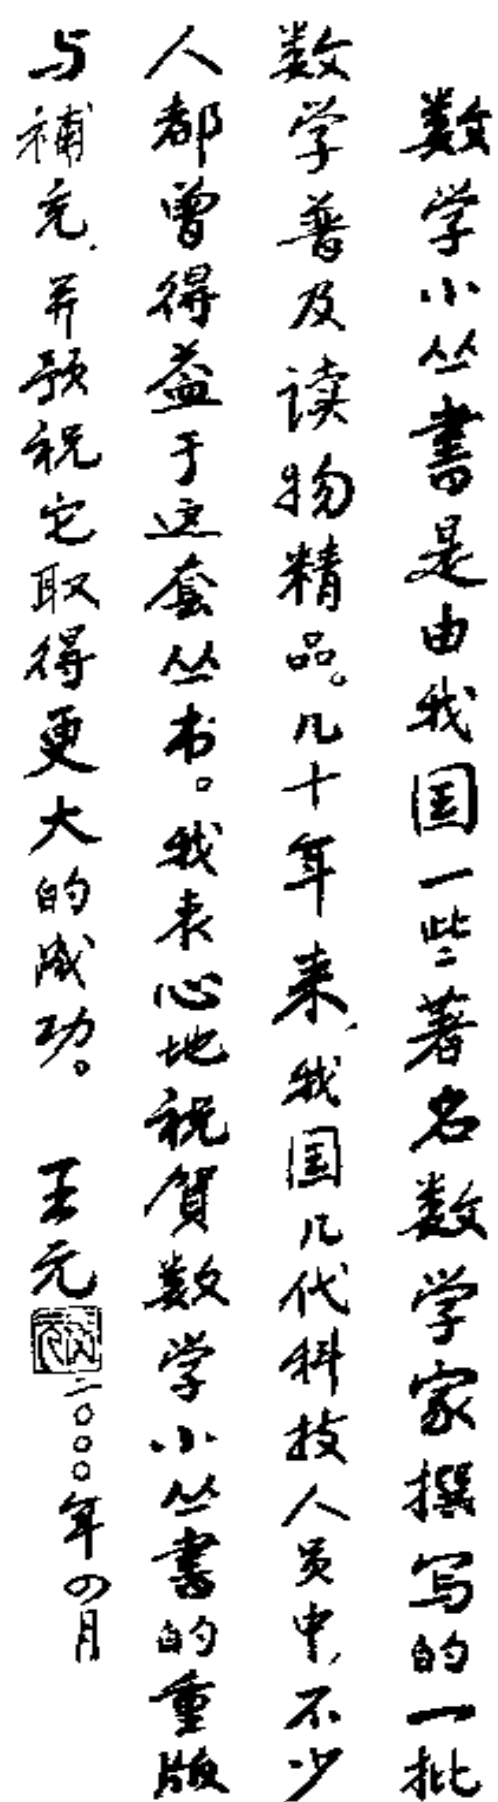 数学小丛書是由我国一些著名数学家撰写的一批
数学普及读物精品。几十年来,我国几代科技人员中,不少
人都曾得益于这套丛书。我衷心地祝賀数学小丛書的重版
与補充,并预祝它取得更大的成功。 王元
二〇〇〇年四月